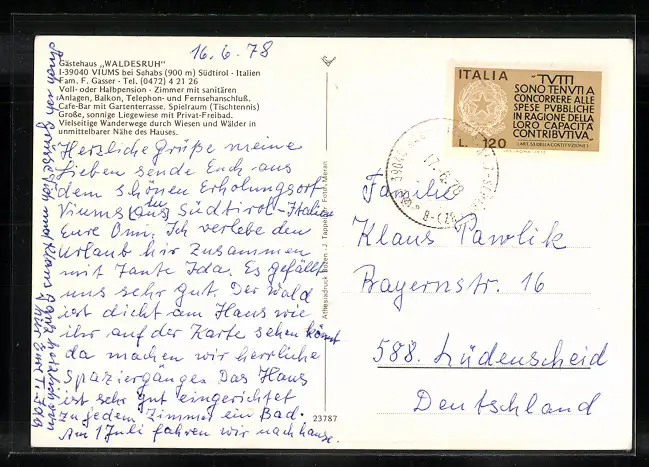 16.6.78
Gästehaus „WALDESRUH"
I-39040 VIUMS bei Schabs (900 m) Südtirol - Italien
Fam. F. Gasser - Tel. (0472) 4 21 26
Voll- oder Halbpension - Zimmer mit sanitären
Anlagen, Balkon, Telephon- und Fernsehanschluß.
Cafe-Bar mit Gartenterrasse. Spielraum (Tischtennis)
Große, sonnige Liegewiese mit Privat-Freibad.
Vielseitige Wanderwege durch Wiesen und Wälder in
unmittelbarer Nähe des Hauses.
Herzliche Grüße meine
Lieben sende Euch aus
dem schönen Erholungsort
Viums (aus Südtirol-Italien
Eure Omi. Ich verlebe den
Urlaub hir zusammen
mit Tante Ida. Es gefällt
uns sehr gut. Der Wald
ist dicht am Haus wie
ihr auf der Karte sehen könnt
da machen wir herrliche
Spaziergänge. Das Haus
ist sehr gut eingerichtet
zu jedem Zimmer ein Bad.
Am 1 Juli fahren wir nach hause.
und Klaus ganz herzlich von
Eure T. Ida
Athesiadruck Bozen - J. Tappeiner, Foto, Meran
23787
ITALIA
TUTTI
SONO TENUTI A
CONCORRERE ALLE
SPESE PUBBLICHE
IN RAGIONE DELLA
LORO CAPACITÀ
CONTRIBUTIVA.
(ART. 53 DELLA COSTITUZIONE)
L. 120
17.6.78
(BZ)
Familie
Klaus Pawlik
Bayernstr. 16
588. Lüdenscheid
Deutschland